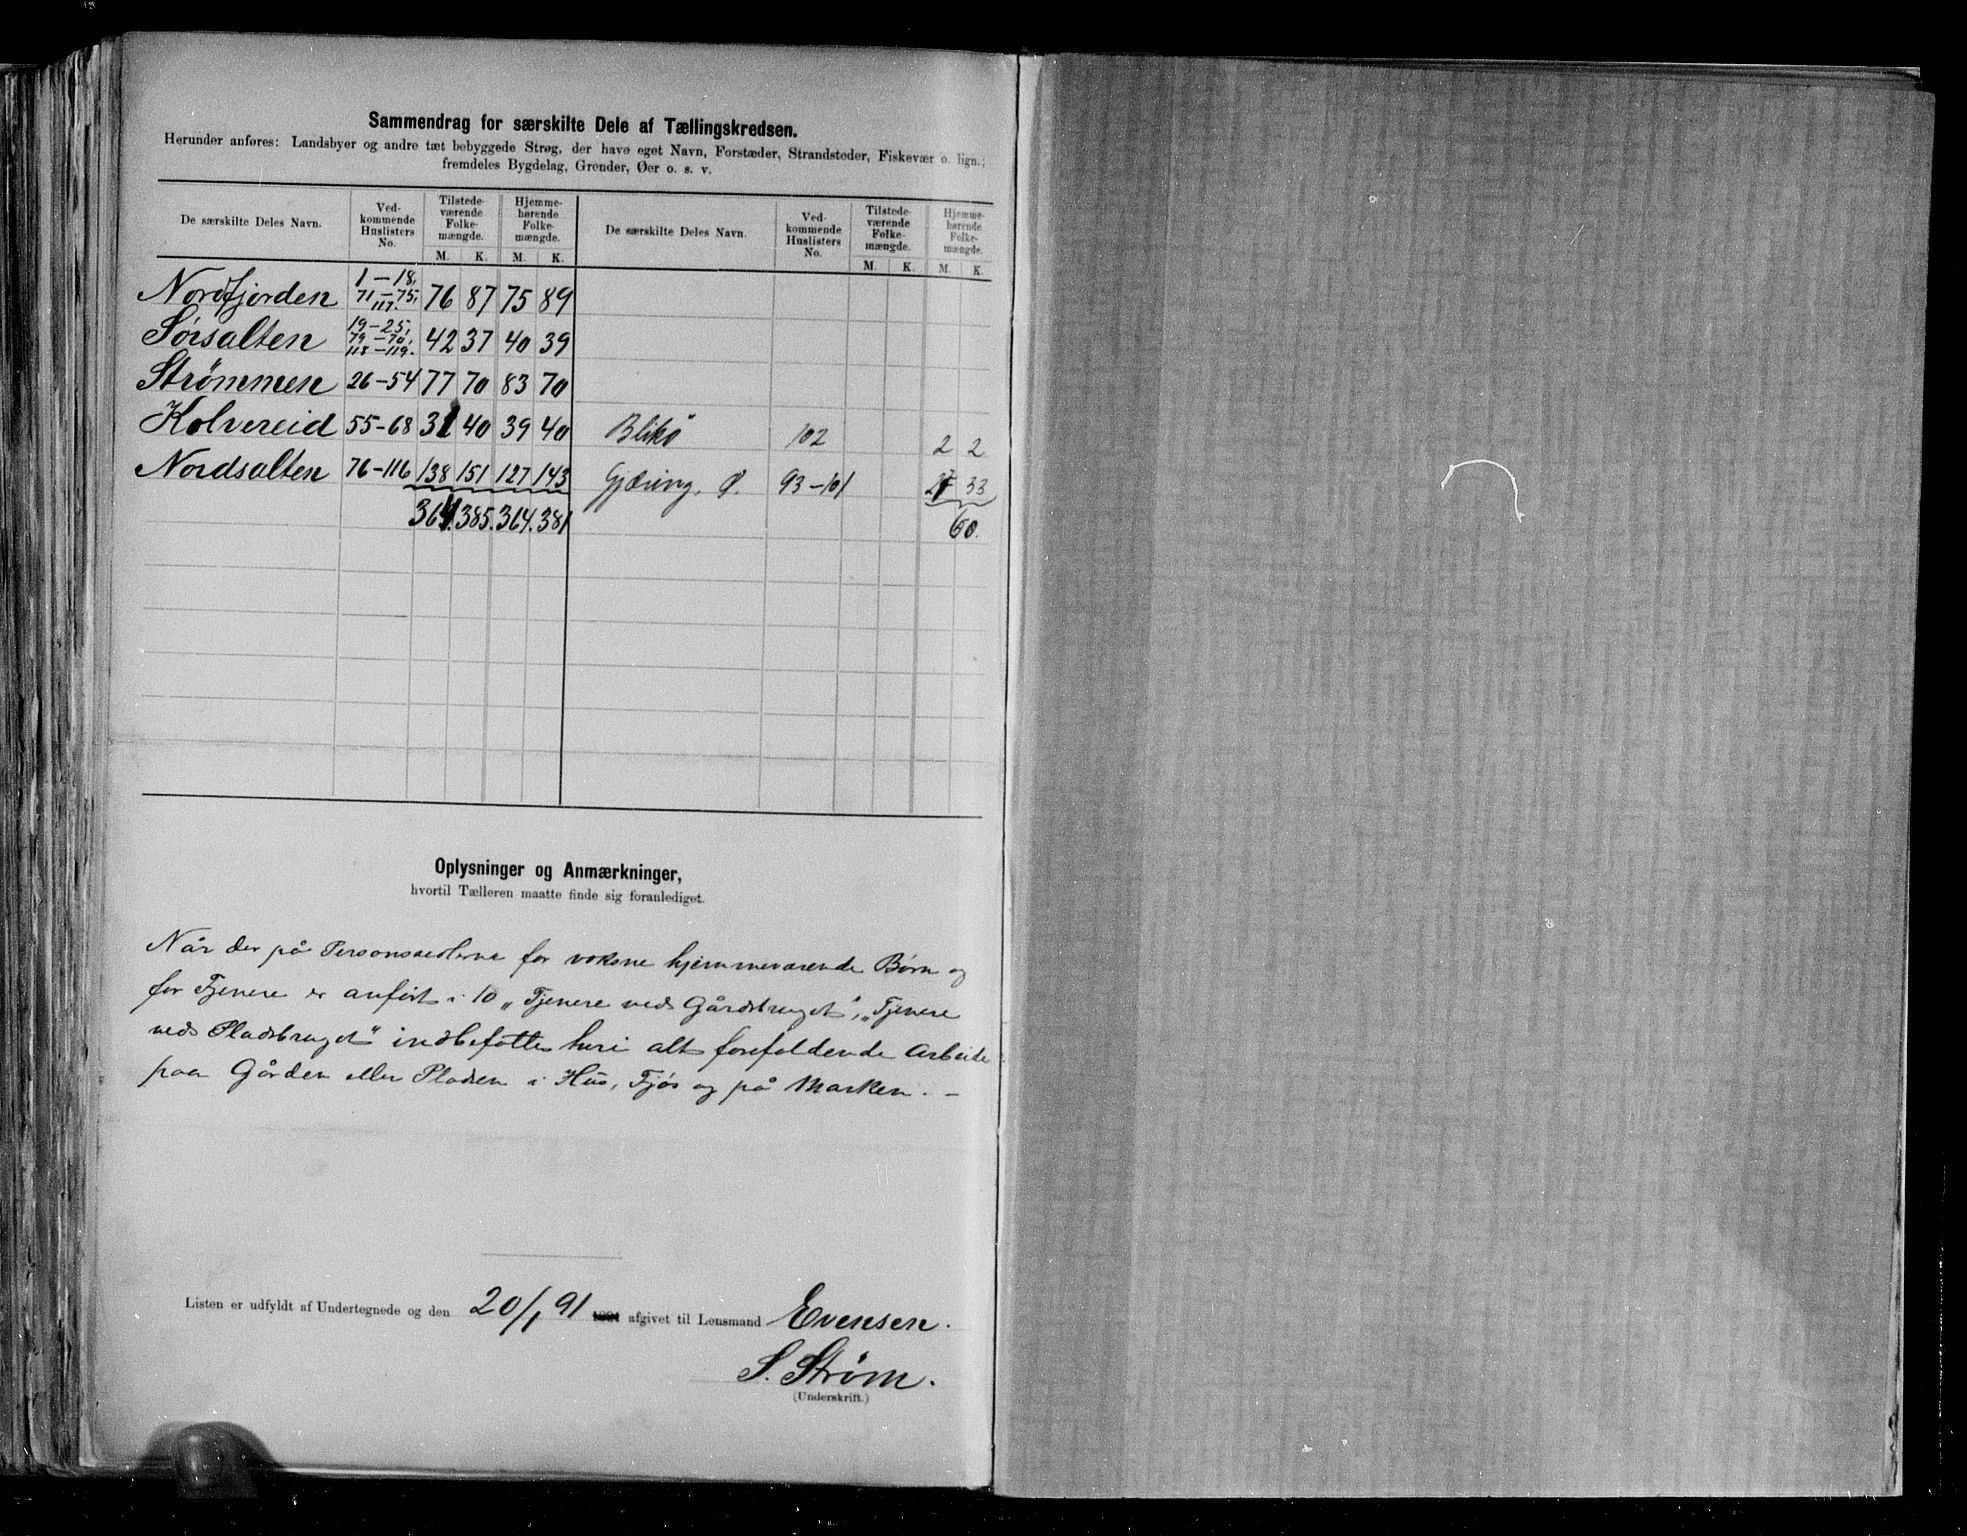 Sammendrag for særskilte Dele af Tællingskredsen.
Herunder anføres: Landsbyer og andre tæt bebyggede Strøg, der have eget Navn, Forstæder, Strandsteder, Fiskevær o. lign.;
fremdeles Bygdelag, Grender, Øer o. s. v.
De særskilte Deles Navn. Ved-kommende Huslisters No. Tilstede-værende Folke-mængde. Hjemme-hørende Folke-mængde. De særskilte Deles Navn. Ved-kommende Huslisters No. Tilstede-værende Folke-mængde. Hjemme-hørende Folke-mængde.
M. K. M. K. M. K. M. K.
Nordfjorden 1-18, 71-75, 117. 76 87 75 89
Sørsalten 19-25, 79-70, 118-119. 42 37 40 39
Strømmen 26-54 77 70 83 70
Kolvereid 55-68 31 40 39 40 Blikø 102 2 2
Nordsalten 76-116 138 151 127 143 Gjæring, Ø. 93-101 27 33
364. 385. 364. 381 60.
Oplysninger og Anmærkninger,
hvortil Tælleren maatte finde sig foranlediget.
Når der på Personssedlerne for voksne hjemmeværende Børn og
for Tjenere er anført i 10 „Tjenere ved Gårdsbruget", „Tjenere
ved Pladsbruget" indbefattes heri alt forefaldende Arbeide
paa Gården eller Pladsen i Hus, Fjøs og på Marken. –
Listen er udfyldt af Undertegnede og den 20/1 91 1891 afgivet til Lensmand Evensen.
S. Strøm.
(Underskrift.)